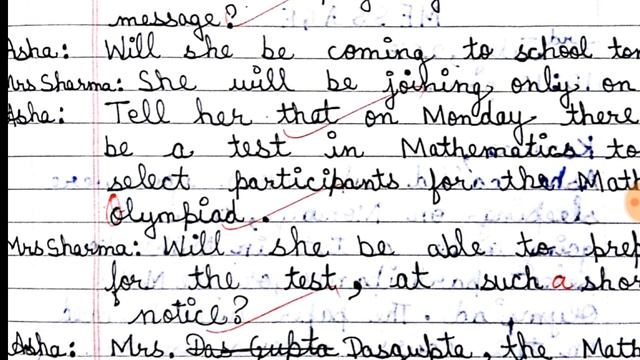 message?
Asha: Will she be coming to school
Mrs Sharma: She will be joining only on
Asha: Tell her that on Monday there
be a test in Mathematics to
select participants for the Math
Olympiad.
Mrs Sharma: Will she be able to
for the test, at such a
notice?
Asha: Mrs. Das Gupta Dasgupta, the Math